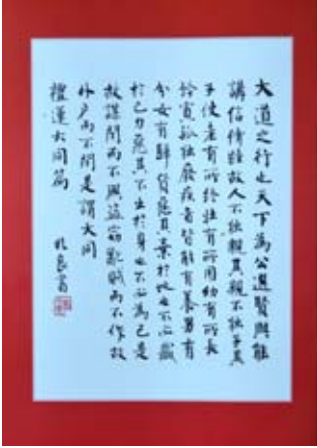 大道之行也天下為公選賢與能
講信修睦故人不獨親其親不獨子其
子使老有所終壯有所用幼有所長
矜寡孤獨廢疾者皆能有養男有
分女有歸貨惡其棄於地也不必藏
於己力惡其不出於身也不必為己是
故謀閉而不興盜竊亂賊而不作故
外戶而不閉是謂大同
禮運大同篇
書